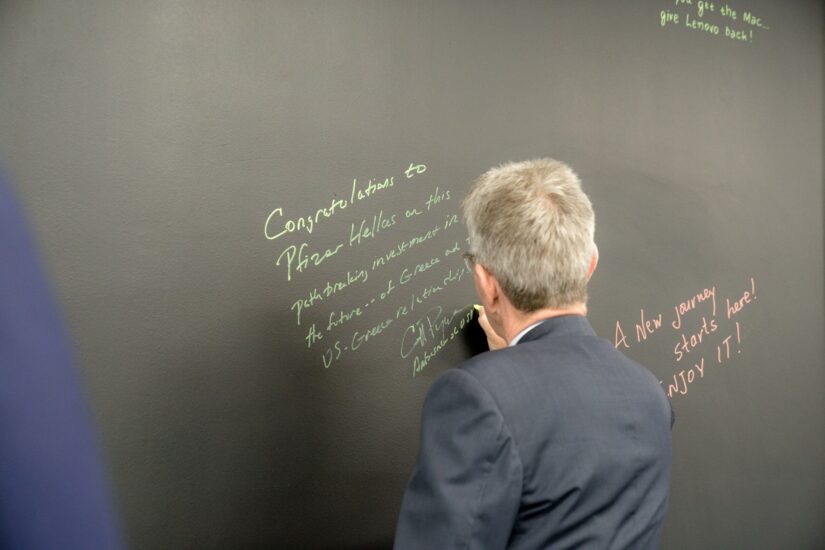 you get the Mac...
give Lenovo back!
Congratulations to
Pfizer Hellas on this
pathbreaking investment in
the future -- of Greece and
US-Greece relationship
A New journey
starts here!
ENJOY IT!